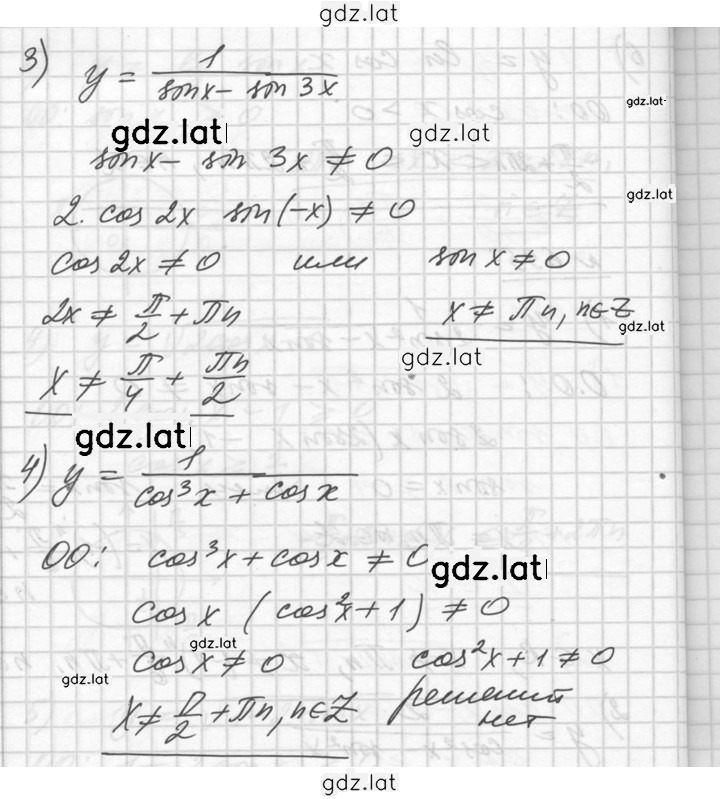 gdz.lat
3) y = 1 / (sin x − sin 3x)
gdz.lat
gdz.lat
gdz.lat
sin x − sin 3x ≠ 0
2. cos 2x sin(−x) ≠ 0
gdz.lat
cos 2x ≠ 0 или sin x ≠ 0
2x ≠ π/2 + πn x ≠ πn, n∈Z
gdz.lat
gdz.lat
x ≠ π/4 + πn/2
gdz.lat
4) y = 1 / (cos³x + cos x)
ОО: cos³x + cos x ≠ 0
gdz.lat
cos x (cos²x + 1) ≠ 0
gdz.lat
cos x ≠ 0 cos²x + 1 ≠ 0
gdz.lat
x ≠ π/2 + πn, n∈Z решений
нет
gdz.lat